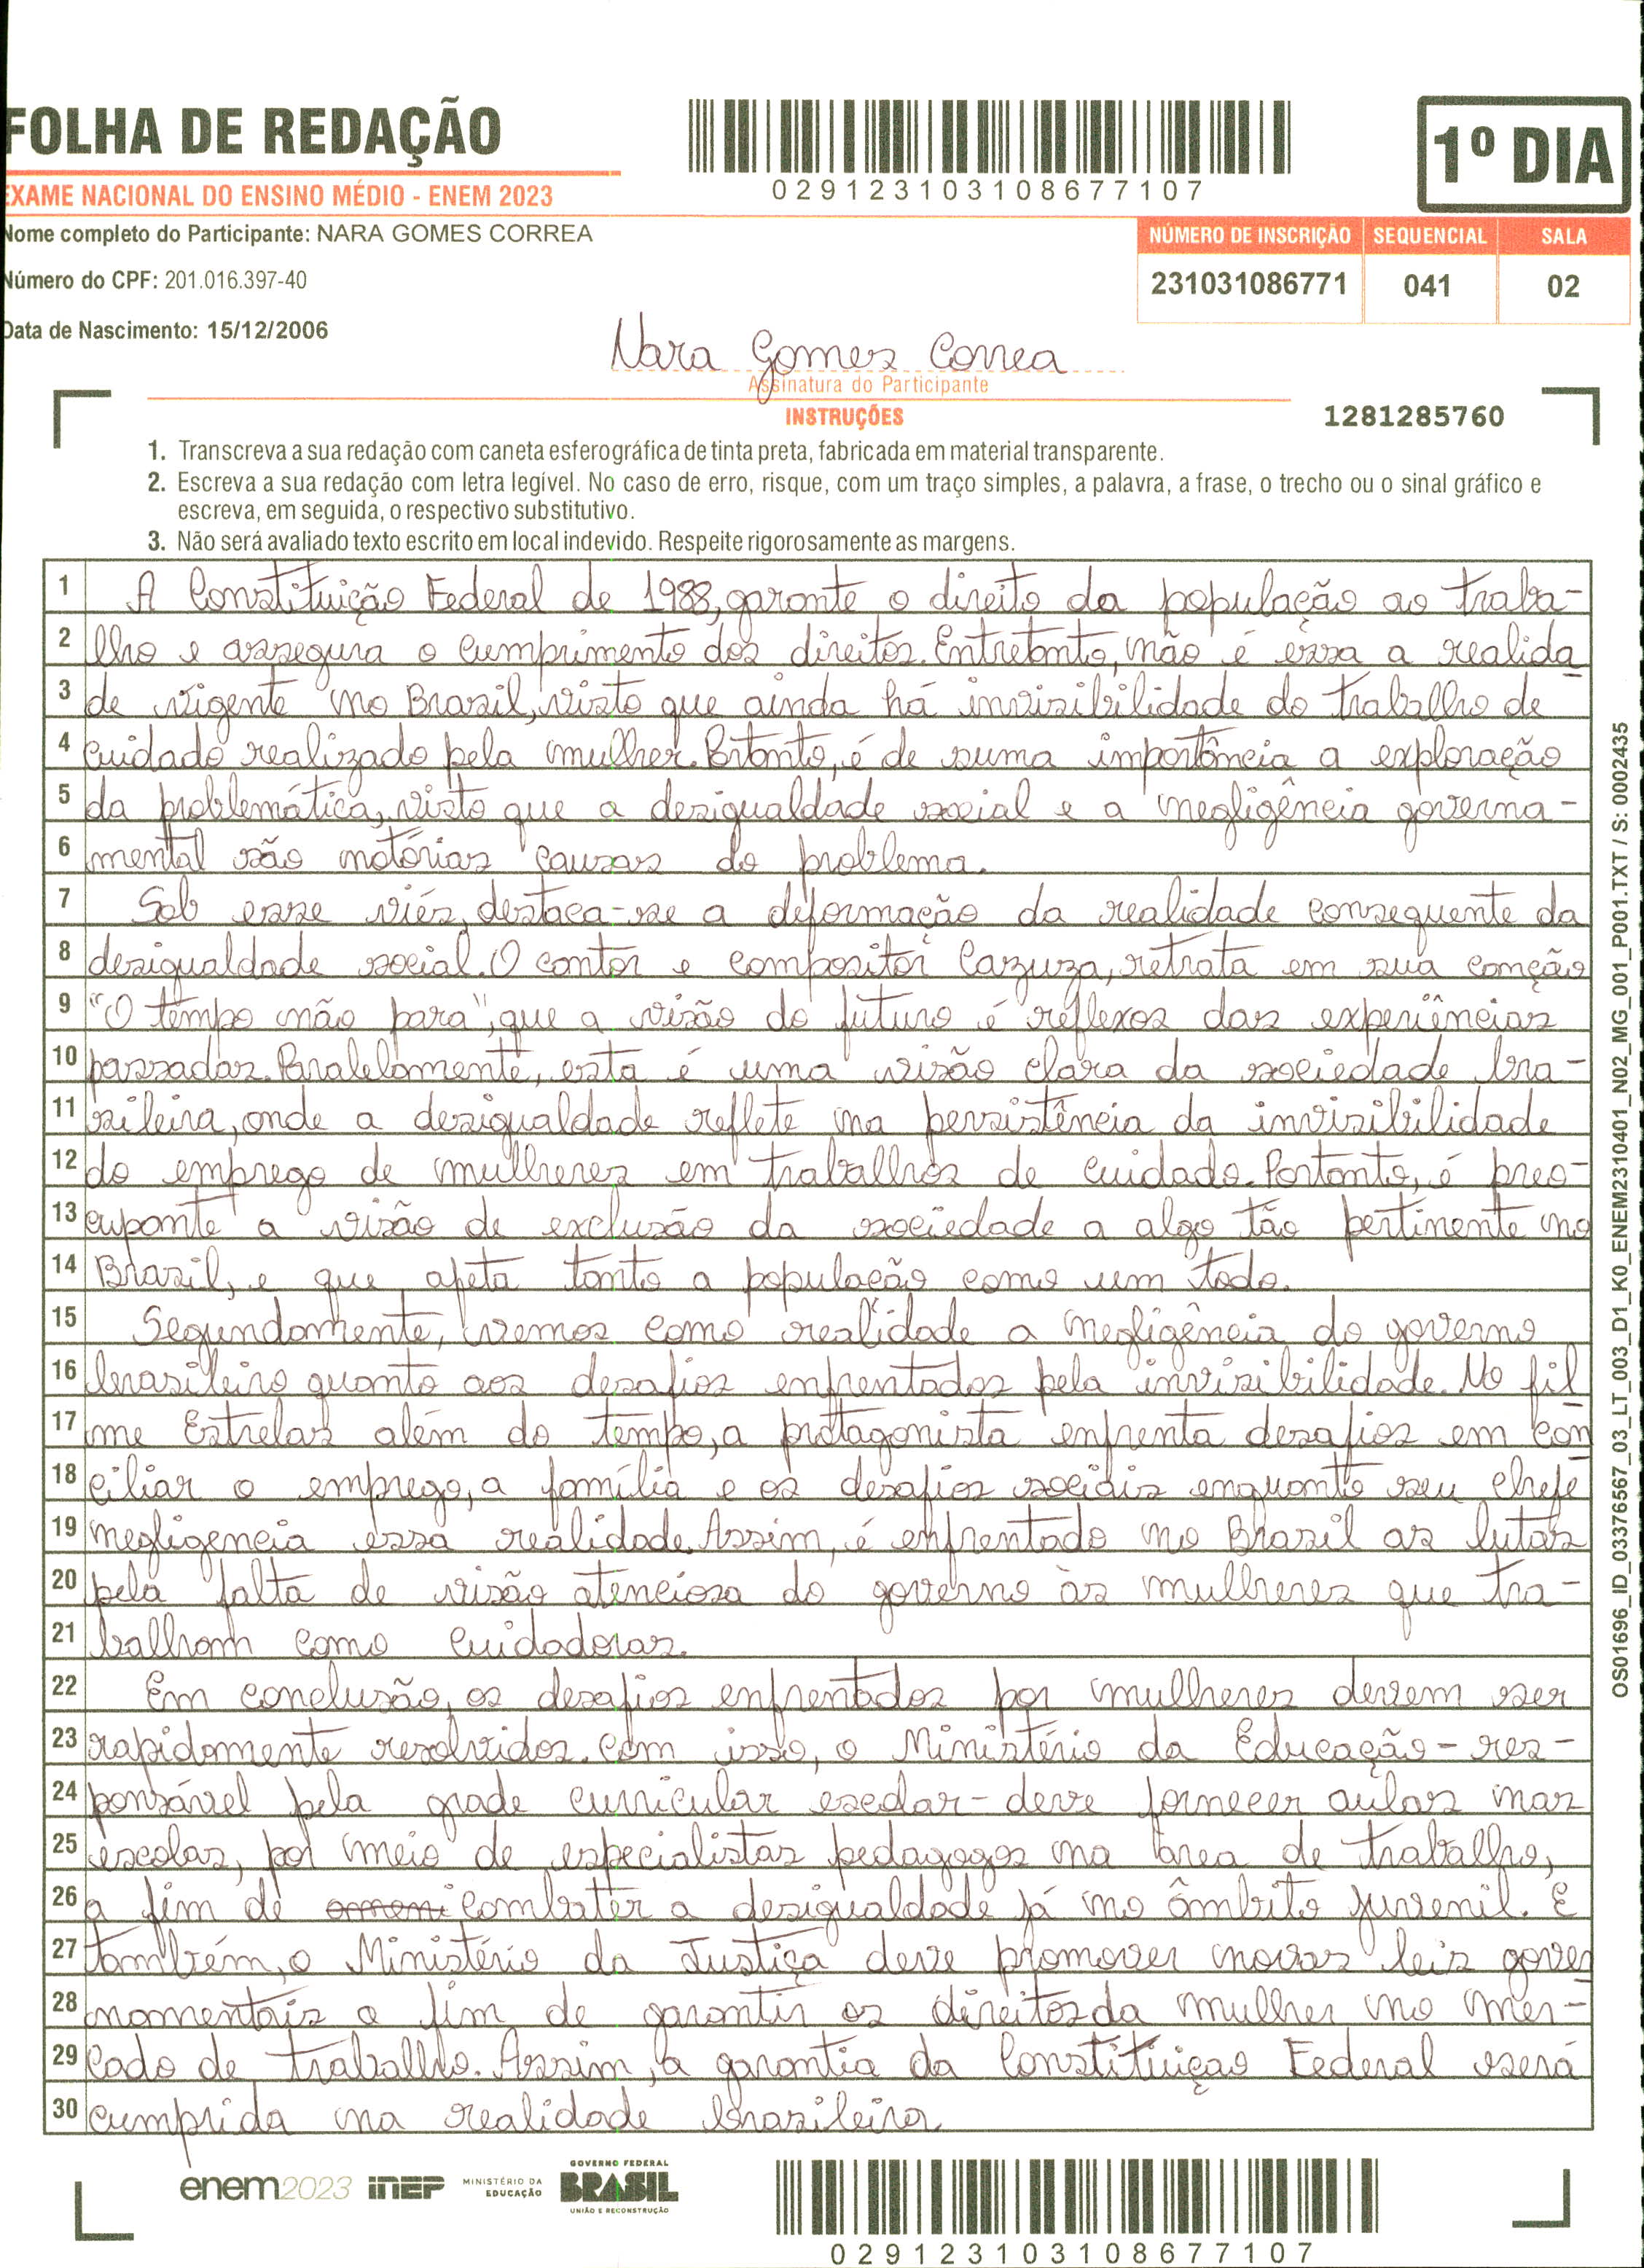 FOLHA DE REDAÇÃO
EXAME NACIONAL DO ENSINO MÉDIO - ENEM 2023
029123103108677107
1º DIA
Nome completo do Participante: NARA GOMES CORREA
NÚMERO DE INSCRIÇÃO SEQUENCIAL SALA
Número do CPF: 201.016.397-40
231031086771 041 02
Data de Nascimento: 15/12/2006
Nara Gomes Correa
Assinatura do Participante
INSTRUÇÕES
1281285760
1. Transcreva a sua redação com caneta esferográfica de tinta preta, fabricada em material transparente.
2. Escreva a sua redação com letra legível. No caso de erro, risque, com um traço simples, a palavra, a frase, o trecho ou o sinal gráfico e
escreva, em seguida, o respectivo substitutivo.
3. Não será avaliado texto escrito em local indevido. Respeite rigorosamente as margens.
1 A Constituição Federal de 1988, garante o direito da população ao traba-
2 lho e assegura o cumprimento dos direitos. Entretanto, não é essa a realida
3 de vigente no Brasil, visto que ainda há invisibilidade do trabalho de
4 cuidado realizado pela mulher. Portanto, é de suma importância a exploração
5 da problemática, visto que a desigualdade social e a negligência governa-
6 mental são notórias causas do problema.
7 Sob esse viés, destaca-se a deformação da realidade consequente da
8 desigualdade social. O cantor e compositor Cazuza, retrata em sua canção
9 "O tempo não para", que a visão do futuro é reflexos das experiências
10 passadas. Paralelamente, esta é uma visão clara da sociedade bra-
11 sileira, onde a desigualdade reflete na persistência da invisibilidade
12 do emprego de mulheres em trabalhos de cuidado. Portanto, é preo-
13 cupante a visão de exclusão da sociedade a algo tão pertinente no
14 Brasil, e que afeta tanto a população como um todo.
15 Segundamente, vemos como realidade a negligência do governo
16 brasileiro quanto aos desafios enfrentados pela invisibilidade. No fil
17 me Estrelas além do tempo, a protagonista enfrenta desafios em con
18 ciliar o emprego, a família e os desafios sociais enquanto seu chefe
19 negligencia essa realidade. Assim, é enfrentado no Brasil as lutas
20 pela falta de visão atenciosa do governo às mulheres que tra-
21 balham como cuidadoras.
22 Em conclusão, os desafios enfrentados por mulheres devem ser
23 rapidamente resolvidos. Com isso, o Ministério da Educação - res-
24 ponsável pela grade curricular escolar - deve fornecer aulas nas
25 escolas, por meio de especialistas pedagogos na área de trabalho,
26 a fim de combater a desigualdade já no âmbito juvenil. E
27 também, o Ministério da Justiça deve promover novas leis gover
28 namentais a fim de garantir os direitos da mulher no mer-
29 cado de trabalho. Assim, a garantia da Constituiçao Federal será
30 cumprida na realidade brasileira
OS01696_ID_03376567_03_LT_003_D1_K0_ENEM2310401_N02_MG_001_P001.TXT / S: 0002435
enem2023 inep MINISTÉRIO DA EDUCAÇÃO GOVERNO FEDERAL BRASIL UNIÃO E RECONSTRUÇÃO
029123103108677107